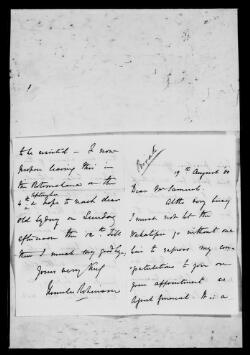 Private
19th August 80
Dear Mr Samuel.
Altho very busy
I must not let the
Wakatipu go without one
line to express my con-
gratulations to you on
your appointment as
Agent General. It is a
to be resisted - I now
propose leaving this in
the Rotomahana on the
hope to reach dear
old Sydney on Sunday
afternoon the
then I much
Yours very truly
Hercules Robinson